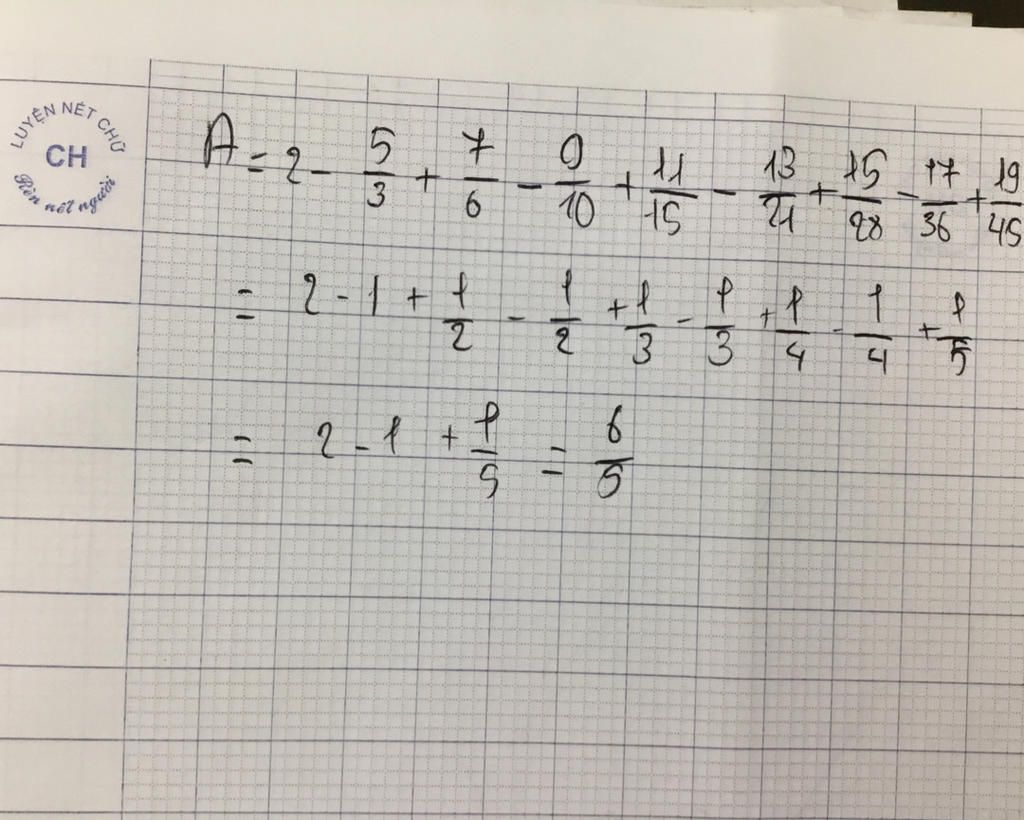 LUYỆN NÉT CHỮ
CH
Rèn nét người
A = 2 - 5/3 + 7/6 - 9/10 + 11/15 - 13/21 + 15/28 - 17/36 + 19/45
= 2 - 1 + 1/2 - 1/2 + 1/3 - 1/3 + 1/4 - 1/4 + 1/5
= 2 - 1 + 1/5 = 6/5